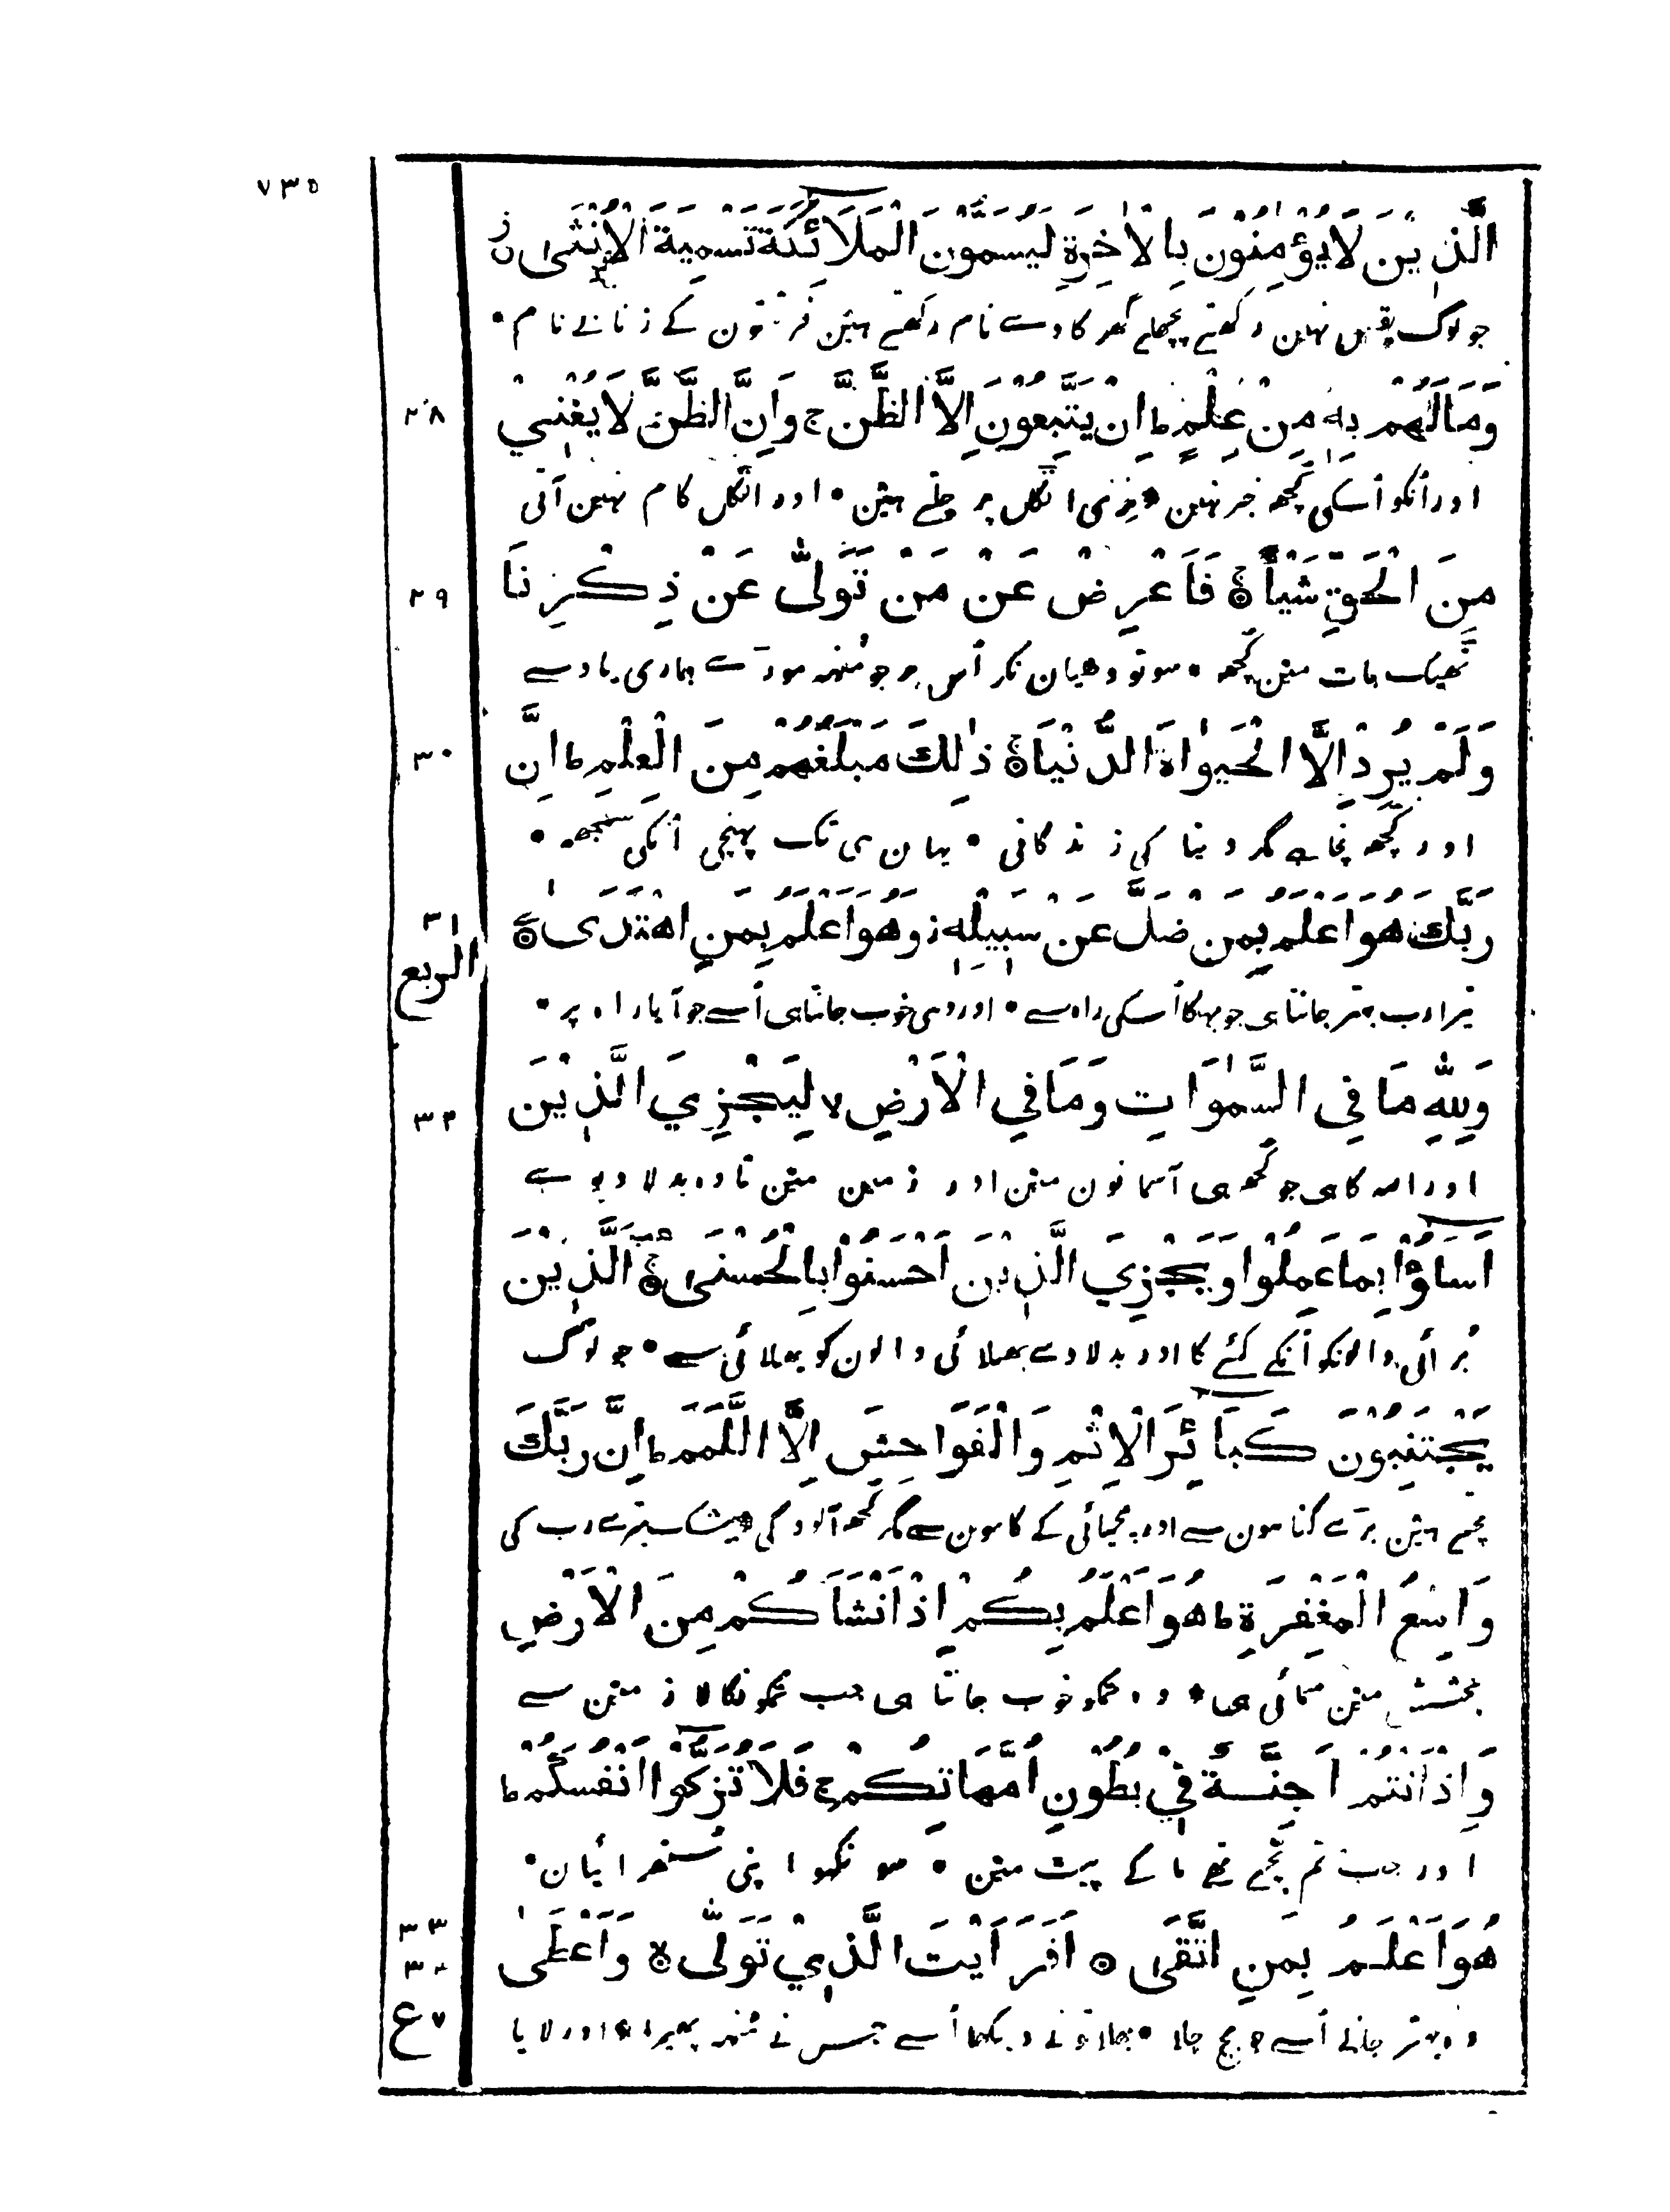 ٧٣٥
الَّذِيْنَ لَا يُؤْمِنُوْنَ بِالْاٰخِرَةِ لَيُسَمُّوْنَ الْمَلَآئِكَةَ تَسْمِيَةَ الْاُنْثٰى
جو لوگ یقین نہین رکھتے پچھلے گھر کا وے نام رکھتے ہین فرشتون کے زنانے نام •
٢٨
وَمَا لَهُمْ بِهٖ مِنْ عِلْمٍ ط اِنْ يَتَّبِعُوْنَ اِلَّا الظَّنَّ ج وَاِنَّ الظَّنَّ لَا يُغْنِيْ
اور اُنکو اُسکی کچھ خبر نہین • نری اٹکل پر چلتے ہین • اور اٹکل کام نہین آتی
٢٩
مِنَ الْحَقِّ شَيْأً فَاَعْرِضْ عَنْ مَنْ تَوَلّٰى عَنْ ذِكْرِنَا
ٹھیک بات مین کچھ • سو تو دھیان نکر اُس پر جو مُنہہ موڑے ہماری یاد سے
٣٠
وَلَمْ يُرِدْ اِلَّا الْحَيٰوةَ الدُّنْيَا ذٰلِكَ مَبْلَغُهُمْ مِنَ الْعِلْمِ ط اِنَّ
اور کچھ نچاہے مگر دنیا کی زندگانی • یہان ہی تک پہنچی اُنکی سمجھہ •
٣١
الربع
رَبَّكَ هُوَ اَعْلَمُ بِمَنْ ضَلَّ عَنْ سَبِيْلِهٖ ز وَهُوَ اَعْلَمُ بِمَنِ اهْتَدَىٰ
تیرا رب بہتر جانتا ہی جو بہکا اُسکی راہ سے • اور وہی خوب جانتا ہی اُسے جو آیا راہ پر •
٣٢
وَلِلّٰهِ مَا فِي السَّمٰوَاتِ وَمَا فِي الْاَرْضِ لا لِيَجْزِيَ الَّذِيْنَ
اور اللہ کا ہی جو کچھ ہی آسمانون مین اور زمین مین تا وہ بدلا دیوے
اَسَآؤُا بِمَا عَمِلُوْا وَيَجْزِيَ الَّذِيْنَ اَحْسَنُوْا بِالْحُسْنَى الَّذِيْنَ
بُرائی والونکو اُنکے کئے کا اور بدلا دے بھلائی والون کو بھلائی سے • جو لوگ
يَجْتَنِبُوْنَ كَبَآئِرَ الْاِثْمِ وَالْفَوَاحِشَ اِلَّا اللَّمَمَ ط اِنَّ رَبَّكَ
بچتے ہین بڑے گناہون سے اور بیحیائی کے کامون سے مگر کچھ آلودگی • بیشک تیرے رب کی
وَاسِعُ الْمَغْفِرَةِ ط هُوَ اَعْلَمُ بِكُمْ اِذْ اَنْشَاَكُمْ مِنَ الْاَرْضِ
بخشش مین سمائی ہی • وہ تمکو خوب جانتا ہی جب تمکو نکالا زمین سے
وَاِذْ اَنْتُمْ اَجِنَّةٌ فِيْ بُطُوْنِ اُمَّهَاتِكُمْ ج فَلَا تُزَكُّوْا اَنْفُسَكُمْ ط
اور جب تم بچے تھے ما کے پیٹ مین • سو نکہو اپنی ستھرائیان •
٣٣
٣٤
ع ٧
هُوَ اَعْلَمُ بِمَنِ اتَّقَى ه اَفَرَاَيْتَ الَّذِيْ تَوَلّٰى لا وَاَعْطٰى
وہ بہتر جانے اُسے جو بچ چلا • بھلا تونے دیکھا اُسے جسنے مُنہہ پھیرا • اور لایا